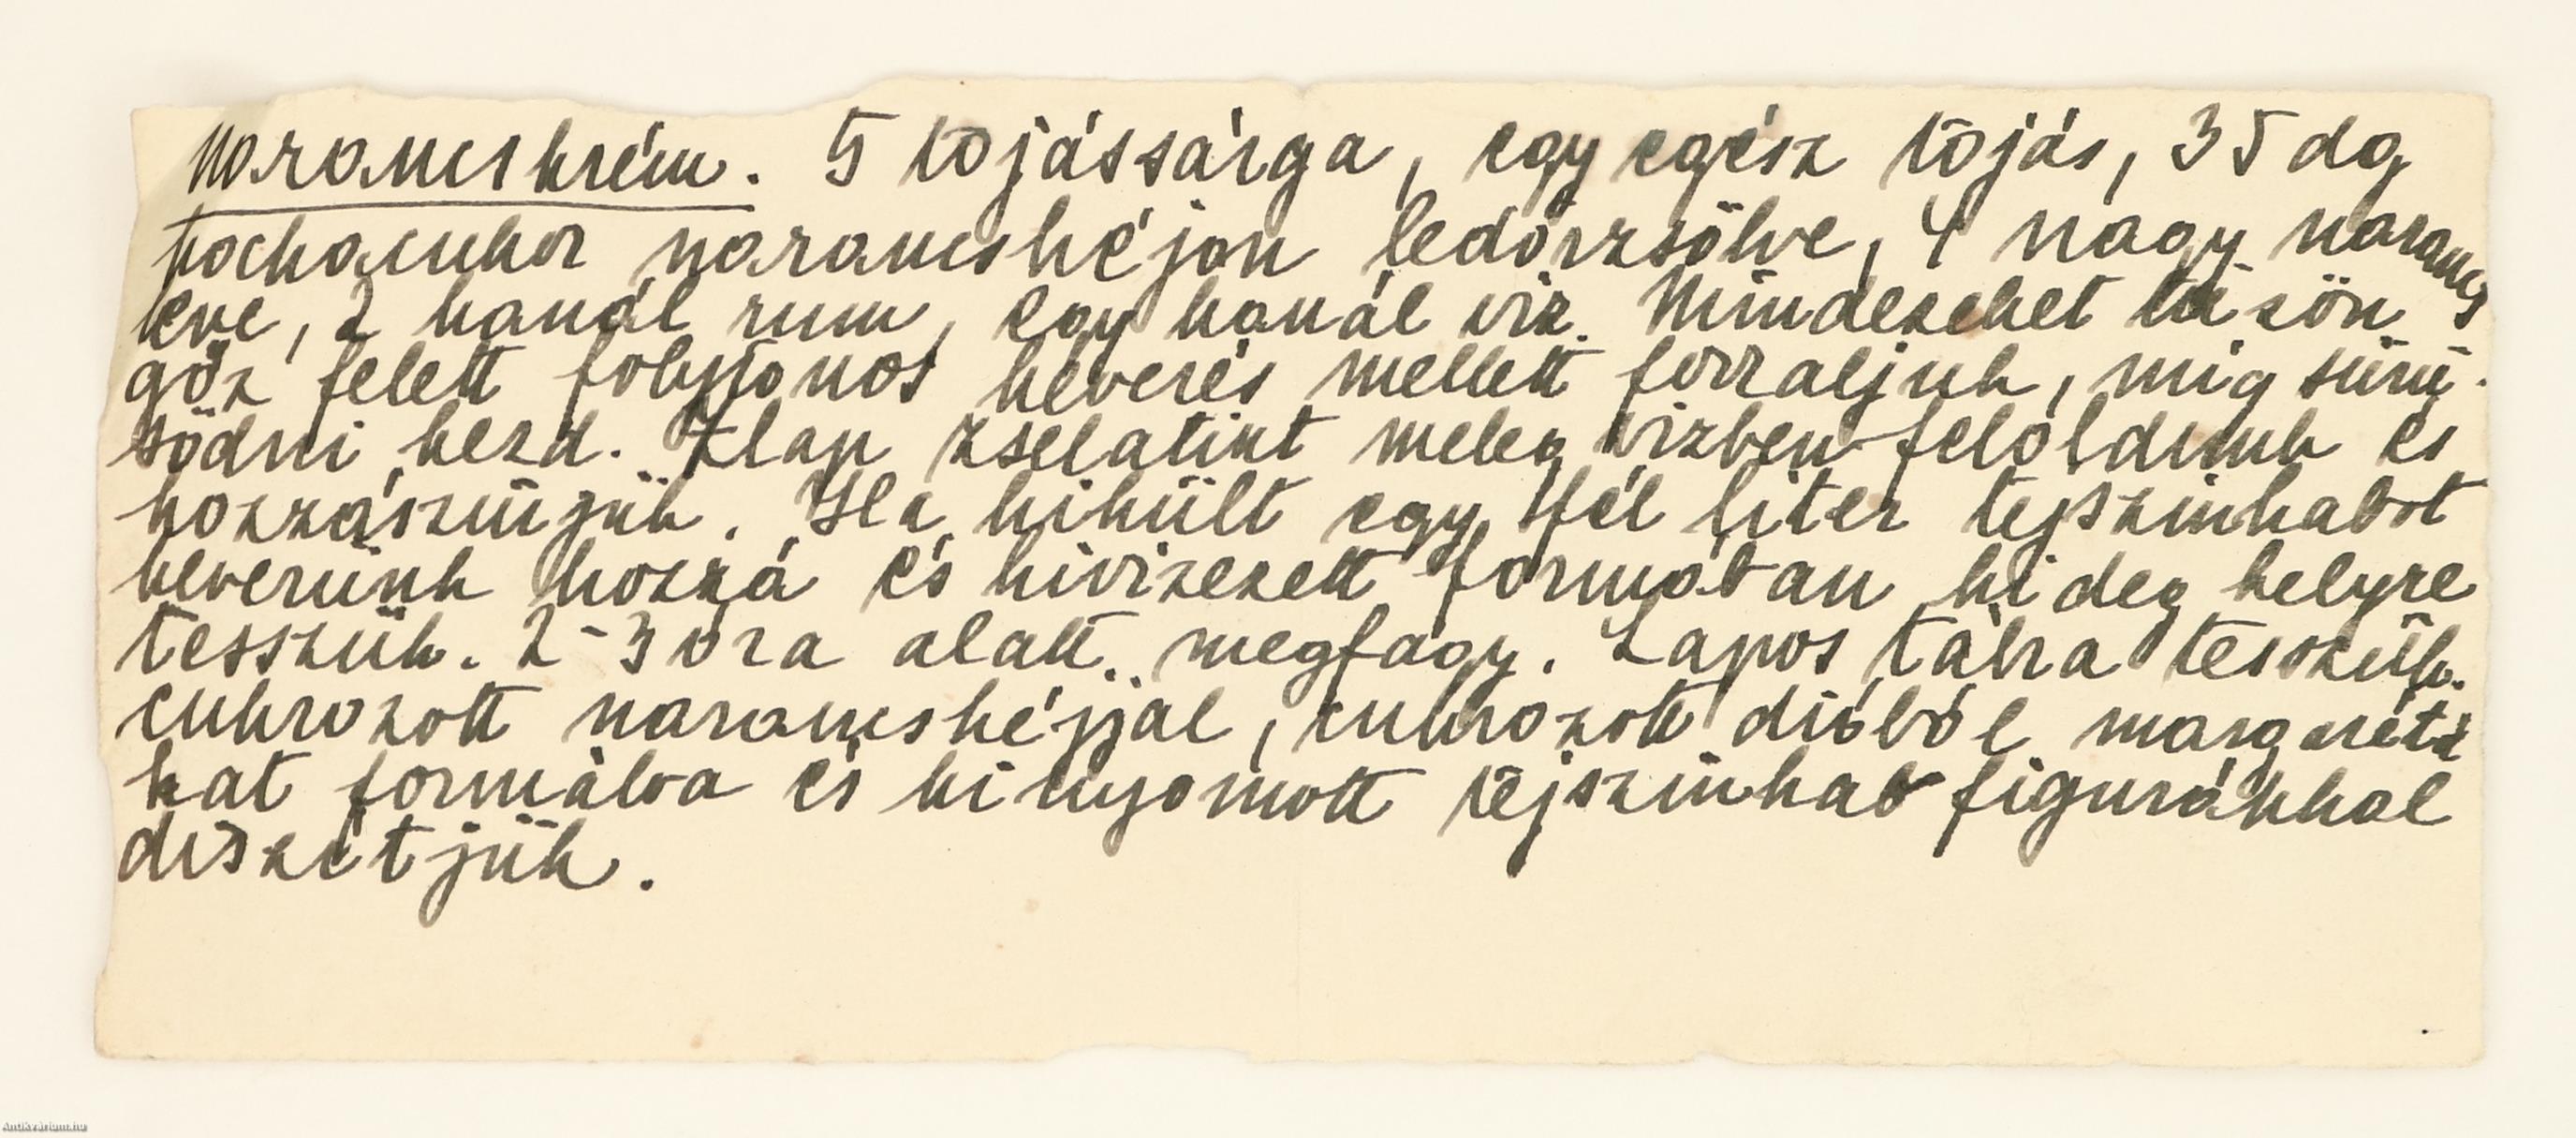 Narancskrém. 5 tojássárga, egy egész tojás, 35 dg
kockacukor narancshéjon ledörzsölve, 4 nagy narancs
leve, 2 kanál rum, egy kanál viz. Mindezeket tüzön
gőz felett folytonos keverés mellett forraljuk, mig sürü-
södni kezd. lap zselatint meleg vizben feloldunk és
hozzászürjük. Ha kihült egy fél liter tejszinhabot
keverünk hozzá és kivizezett formában hideg helyre
tesszük. 2-3 óra alatt megfagy. Lapos tálra tesszük.
cukrozott narancshéjjal, cukrozott dióból margaréta
kat formálva és kinyomott tejszinhab figurákkal
diszitjük.
Antikvárium.hu